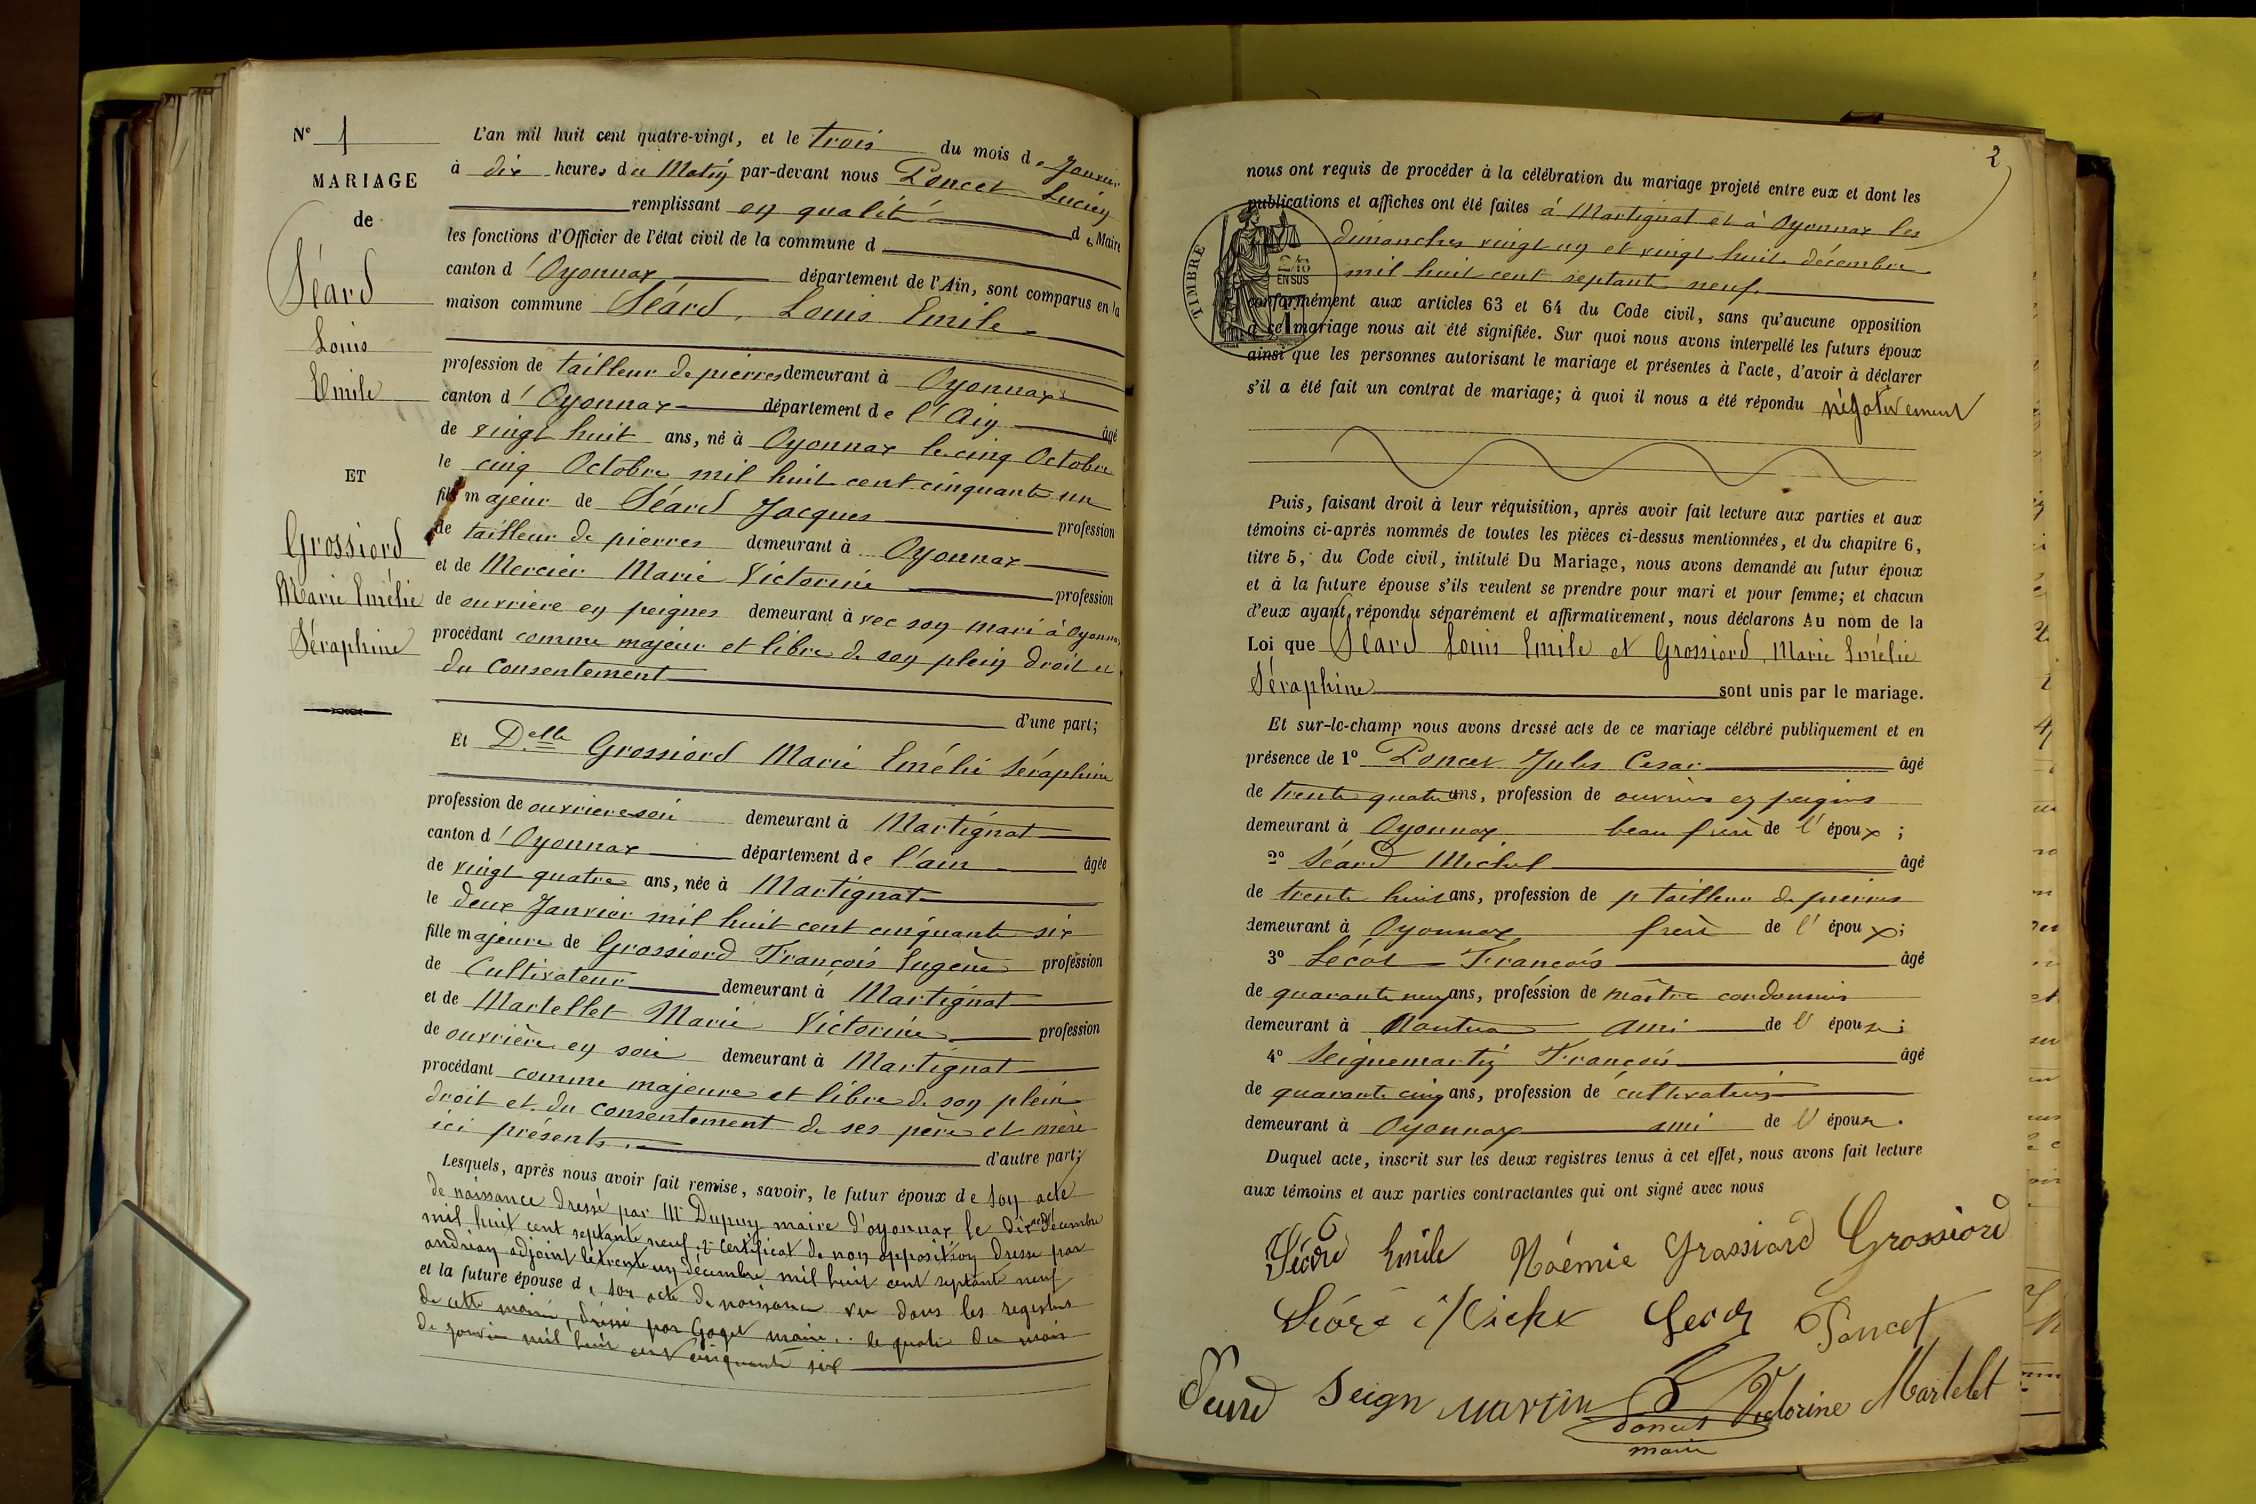 N° 1
MARIAGE
de
Séard
Louis
Emile
ET
Grossiord
Marie Emélie
Séraphine
L'an mil huit cent quatre-vingt, et le trois du mois de Janvier
à dix heures du Matin par-devant nous Poncet Lucien
remplissant en qualité de Maire
les fonctions d'Officier de l'état civil de la commune d
canton d'Oyonnax département de l'Ain, sont comparus en la
maison commune Séard, Louis Emile
profession de tailleur de pierres demeurant à Oyonnax
canton d'Oyonnax département de l'Ain âgé
de vingt huit ans, né à Oyonnax le cinq Octobre
le cinq Octobre mil huit cent cinquante un
fils majeur de Séard Jacques profession
de tailleur de pierres demeurant à Oyonnax
et de Mercier Marie Victorine profession
de ouvrière en peignes demeurant à vec son mari à Oyonnax
procédant comme majeur et libre de son plein droit et
du consentement
d'une part;
Et Delle Grossiord Marie Emélie Séraphine
profession de ouvriere soie demeurant à Martignat
canton d'Oyonnax département de l'ain âgée
de vingt quatre ans, née à Martignat
le deux Janvier mil huit cent cinquante six
fille majeure de Grossiord François Eugène profession
de Cultivateur demeurant à Martignat
et de Martellet Marie Victorine profession
de ouvrière en soie demeurant à Martignat
procédant comme majeure et libre de son plein
droit et du consentement de ses père et mère
ici présents.
d'autre part;
Lesquels, après nous avoir fait remise, savoir, le futur époux de son acte
de naissance dressé par Mr Dupuy maire d'oyonnax le dix décembre
mil huit cent septante neuf. 2° certificat de non opposition dresse par
andrian adjoint le trente un décembre mil huit cent septante neuf
et la future épouse de son acte de naissance vu dans les registres
de cette mairie, dressé par Goget maire.. le quatre du mois
de janvier mil huit cent cinquante six
2
nous ont requis de procéder à la célébration du mariage projeté entre eux et dont les
publications et affiches ont été faites à Martignat et à Oyonnax les
dimanches vingt un et vingt huit décembre
mil huit cent septante neuf.
TIMBRE
2/10
EN SUS
conformément aux articles 63 et 64 du Code civil, sans qu'aucune opposition
à ce mariage nous ait été signifiée. Sur quoi nous avons interpellé les futurs époux
ainsi que les personnes autorisant le mariage et présentes à l'acte, d'avoir à déclarer
s'il a été fait un contrat de mariage; à quoi il nous a été répondu négativement
Puis, faisant droit à leur réquisition, après avoir fait lecture aux parties et aux
témoins ci-après nommés de toutes les pièces ci-dessus mentionnées, et du chapitre 6,
titre 5, du Code civil, intitulé Du Mariage, nous avons demandé au futur époux
et à la future épouse s'ils veulent se prendre pour mari et pour femme; et chacun
d'eux ayant répondu séparément et affirmativement, nous déclarons Au nom de la
Loi que Séard Louis Emile et Grossiord Marie Emélie
Séraphine sont unis par le mariage.
Et sur-le-champ nous avons dressé acte de ce mariage célébré publiquement et en
présence de 1° Poncet Jules Cesar âgé
de trente quatre ans, profession de ouvrier en peignes
demeurant à Oyonnax beau frère de l'époux;
2° Séard Michel âgé
de trente huit ans, profession de p tailleur de pierres
demeurant à Oyonnax frère de l'époux;
3° Lécot François âgé
de quarante neuf ans, profession de maître cordonnier
demeurant à Nantua ami de l'épouse;
4° Seignemartin François âgé
de quarante cinq ans, profession de cultivateur
demeurant à Oyonnax ami de l'épouse.
Duquel acte, inscrit sur les deux registres tenus à cet effet, nous avons fait lecture
aux témoins et aux parties contractantes qui ont signé avec nous
Emile Noémie Grossiord Grossiord
Poncet
Seign martin Victorine Martelet
Poncet
maire